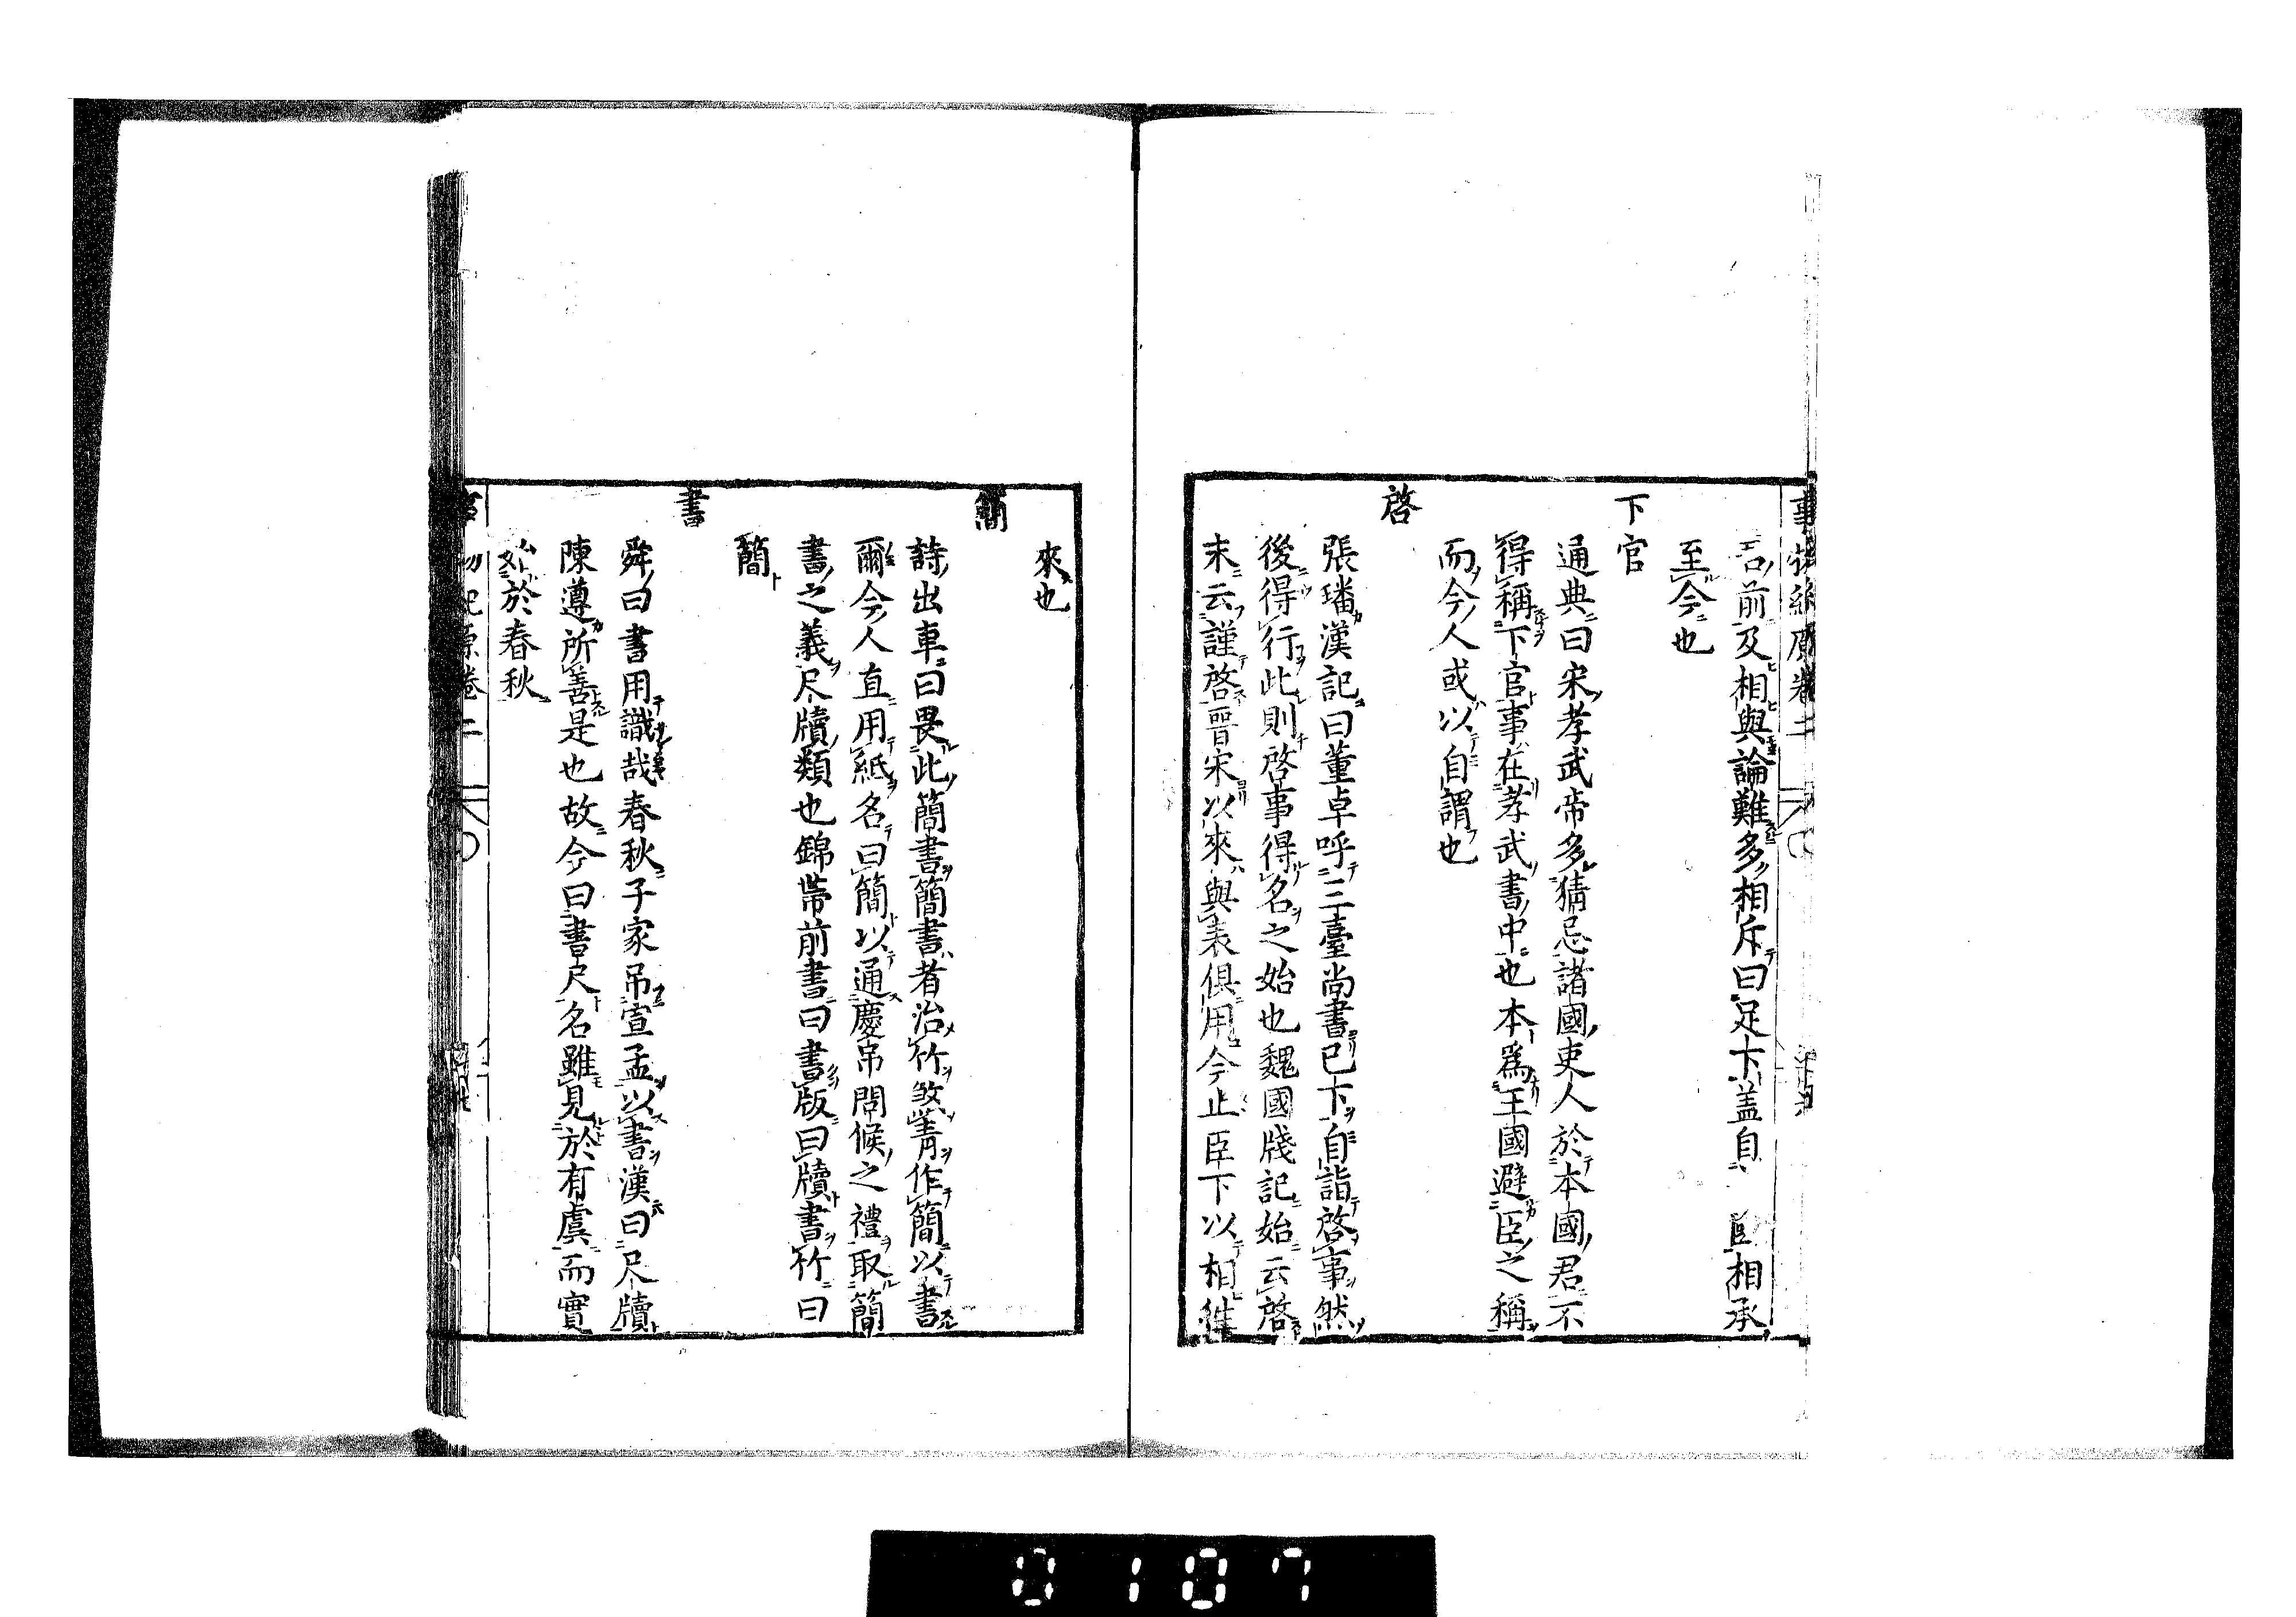 事物紀原卷二
君前及相與論難多相斥曰足下盖自 臣相承
至今也
下官
通典曰宋孝武帝多猜忌諸國吏人於本國君不
得稱下官事在孝武書中也本爲王國避臣之稱
而今人或以自謂也
啓
張璠漢記曰董卓呼三臺尚書已下自詣啓事然
後得行此則啓事得名之始也魏國牋記始云啓
末云謹啓晋宋以來與表俱用今止臣下以相往
來也
簡
詩出車曰畏此簡書簡書者治竹煞青作簡以書
爾今人直用紙名曰簡以通慶吊問候之禮取簡
書之義尺牘類也錦帶前書曰書版曰牘書竹曰
簡
書
舜曰書用識哉春秋子家吊宣孟以書漢曰尺牘
陳遵所善是也故今曰書尺名雖見於有虞而實
始於春秋
物紀原卷二
0107